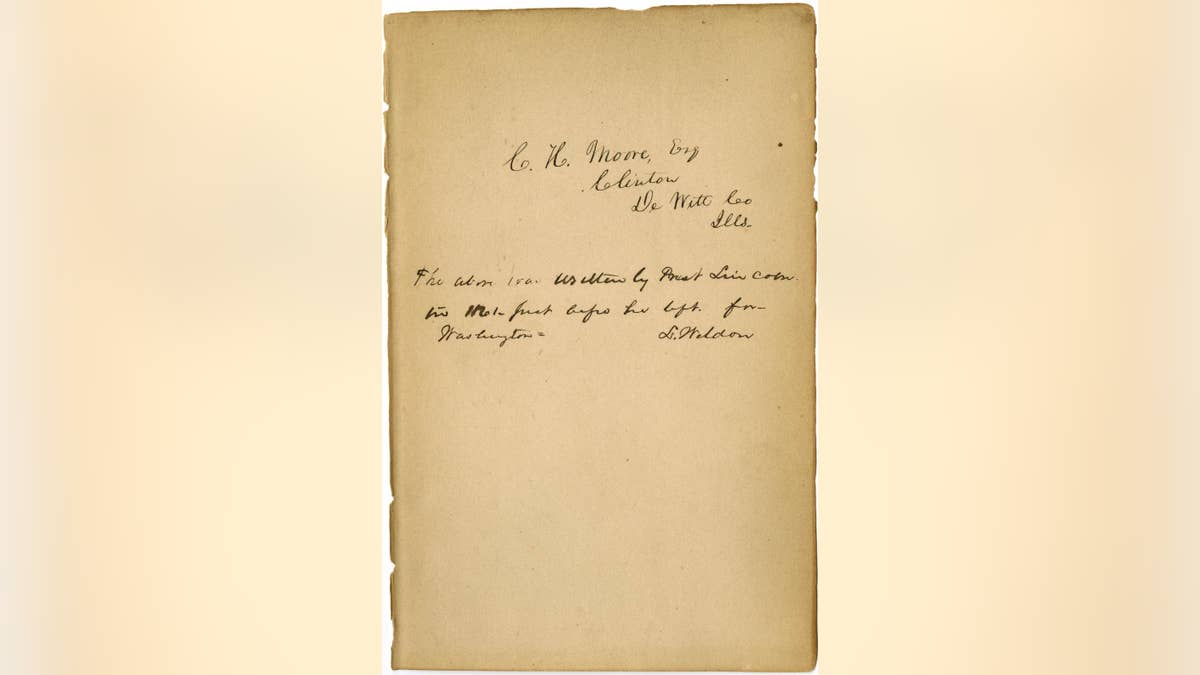 C. H. Moore, Esq
Clinton
De Witt Co
Ills.
The above was written by Prest Lincoln.
in 1861 just before he left for
Washington =
L. Weldon